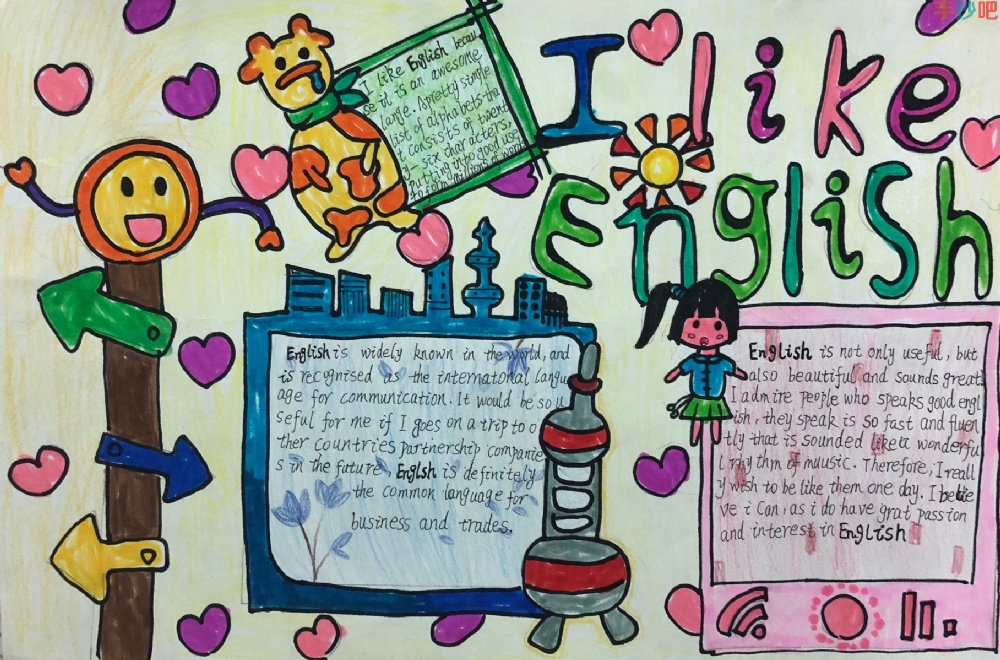 手抄吧
I like
English
I like English becau
se it is an awesome
large. Apretty simple
list of alphabets tha
t consists of twent
six characters.
Putting into good use
to form millions of words
English is widely known in the world, and
is recognised as the international langu
age for communication. It would be so u
seful for me if I goes on a trip to o
ther countries partnership companie
s in the future. English is definitely
the common language for
business and trades.
English is not only useful, but
also beautiful and sounds great
I admire people who speaks good engl
ish, they speak is so fast and fluen
tly that is sounded like a wonderfu
l rhythm of muusic. Therefore, I reall
y wish to be like them one day. I belie
ve i can, as i do have grat passion
and interest in English